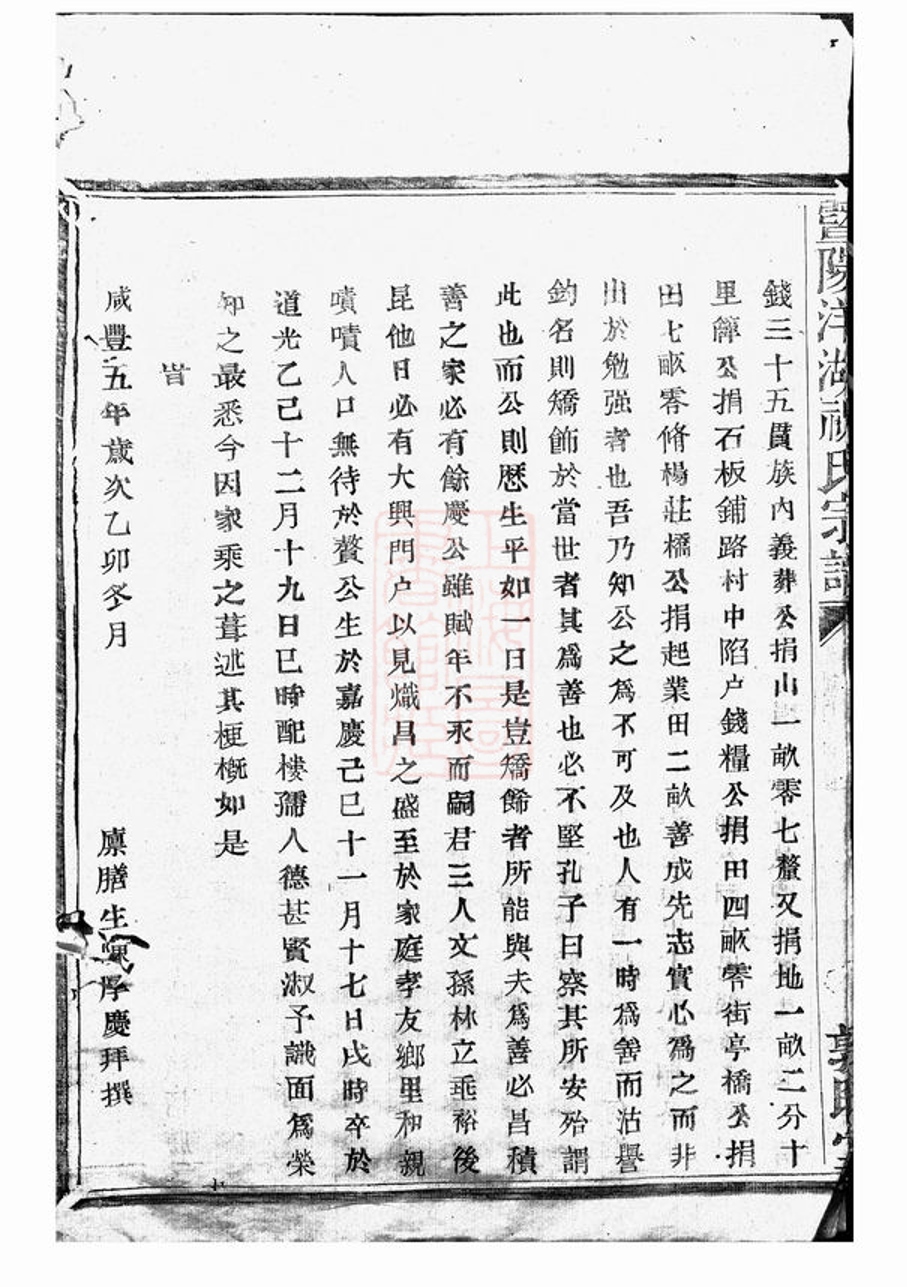 暨陽洋湖祝氏宗譜
錢三十五貫族內義葬公捐山一畝零七釐又捐地一畝二分十
里簰公捐石板鋪路村中陷户錢糧公捐田四畝零街亭橋公捐
田七畝零脩楊莊橋公捐起業田二畝善成先志實心爲之而非
出於勉强者也吾乃知公之爲不可及也人有一時爲善而沽譽
釣名則矯飾於當世者其爲善也必不堅孔子曰察其所安殆謂
此也而公則歷生平如一日是豈矯餙者所能與夫爲善必昌積
善之家必有餘慶公雖賦年不永而嗣君三人文孫林立垂裕後
昆他日必有大興門户以見熾昌之盛至於家庭孝友鄉里和親
嘖嘖人口無待於贅公生於嘉慶己巳十一月十七日戌時卒於
道光乙巳十二月十九日巳時配樓孺人德甚賢淑予識面爲榮
知之最悉今因家乘之葺述其梗槪如是
旹
咸豐五年歲次乙卯冬月 廩膳生陳序慶拜撰